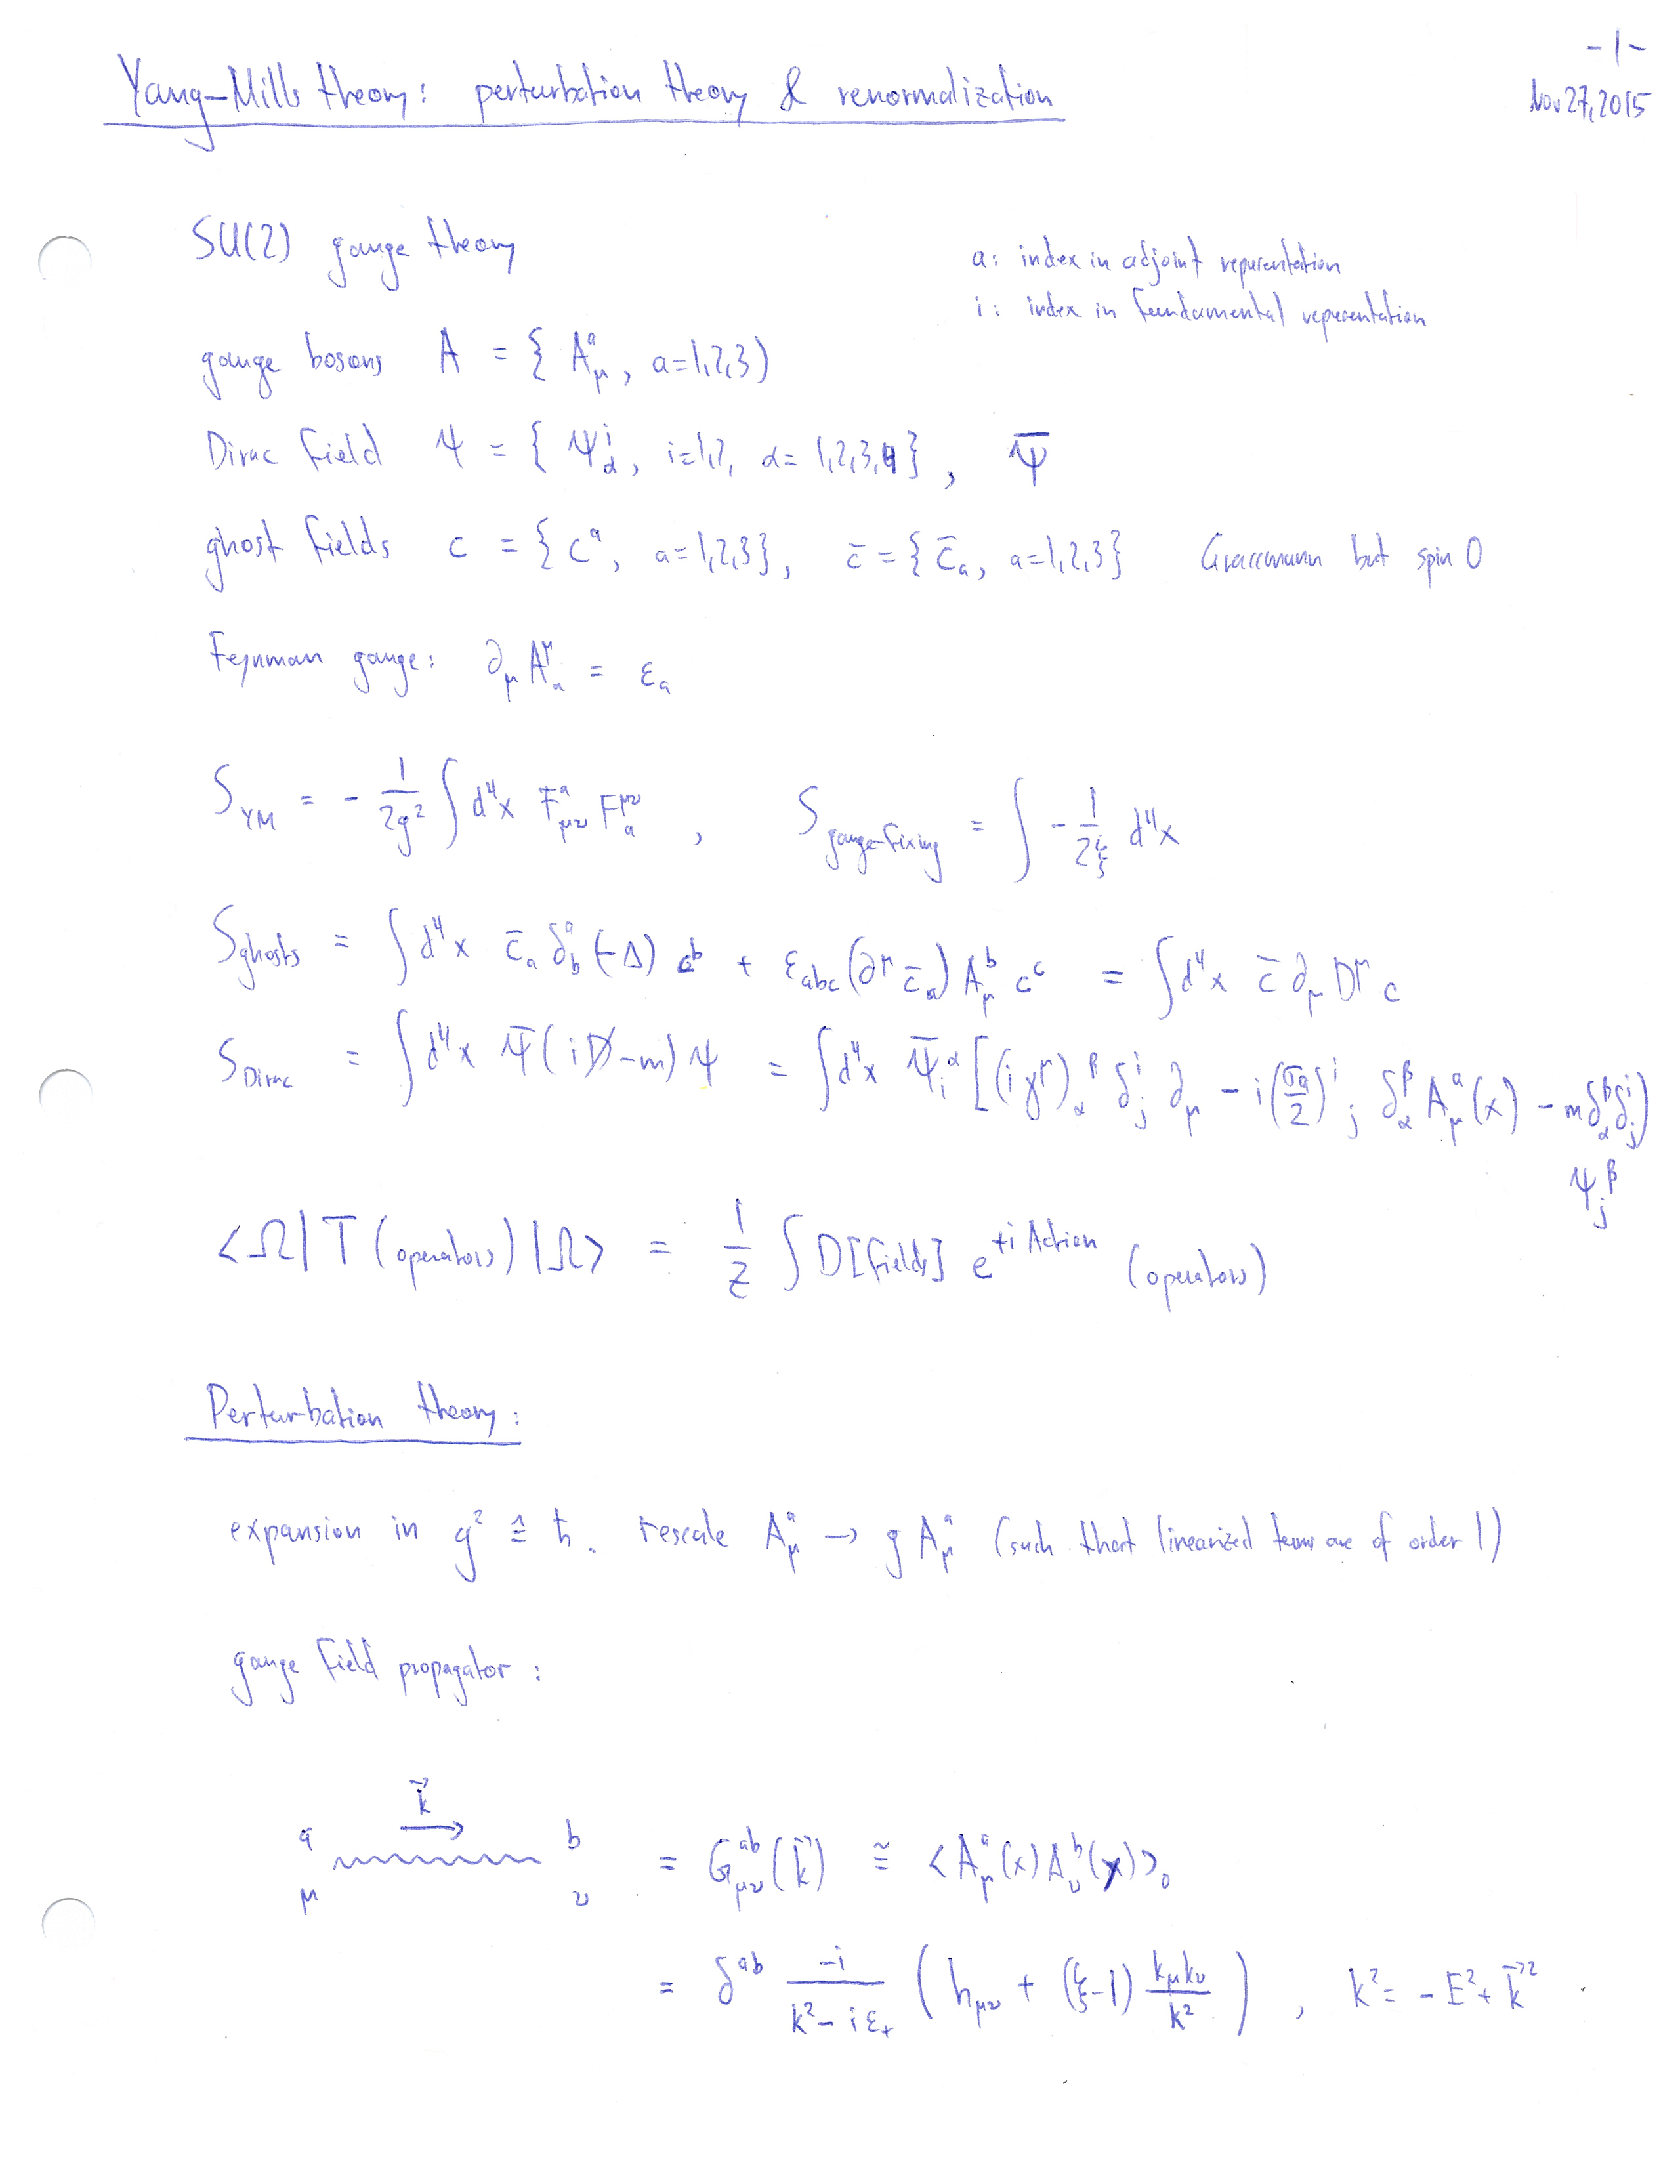 -1-
Yang-Mills theory: perturbation theory & renormalization
Nov 27, 2015
SU(2) gauge theory
a: index in adjoint representation
i: index in fundamental representation
gauge bosons A = { A^a_μ, a=1,2,3)
Dirac field ψ = { ψ^i_α, i=1,2, α= 1,2,3,4} , ψ̄
ghost fields c = { c^a, a=1,2,3}, c̄ = { c̄_a, a=1,2,3} Grassmann but spin 0
Feynman gauge: ∂_μ A^μ_a = ε_a
S_YM = - 1/(2g²) ∫ d⁴x F^a_μν F^μν_a , S_gauge-fixing = ∫ - 1/(2ξ) d⁴x
S_ghosts = ∫ d⁴x c̄_a δ^a_b (-Δ) c^b + ε_abc (∂^μ c̄_a) A^b_μ c^c = ∫ d⁴x c̄ ∂_μ D^μ c
S_Dirac = ∫ d⁴x ψ̄ (i D̸ - m) ψ = ∫ d⁴x ψ̄_i^α [ (i γ^μ)_α^β δ^i_j ∂_μ - i (σ_a/2)^i_j δ_α^β A^a_μ(x) - m δ_α^β δ^i_j )
ψ_j^β
<Ω| T (operators) |Ω> = 1/Z ∫ D[fields] e^{+i Action} (operators)
Perturbation theory:
expansion in g² ≙ ħ. rescale A^a_μ → g A^a_μ (such that linearized terms are of order 1)
gauge field propagator:
k⃗
a b
μ ν
= G^ab_μν (k⃗) ≅ <A^a_μ(x) A^b_ν(y)>_0
= δ^ab -i/(k² - i ε_+) ( h_μν + (ξ-1) k_μ k_ν / k² ) , k² = - E² + k⃗²